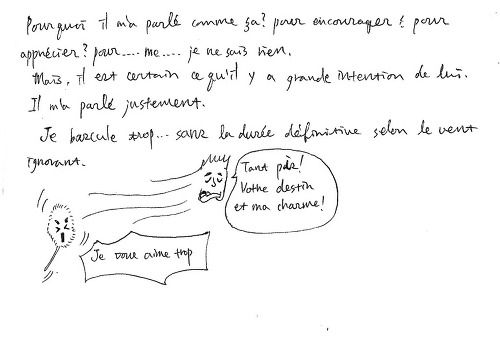 Pourquoi il m'a parlé comme ça? pour encourager? pour
apprécier? pour.... me.... je ne sais rien.
Mais, il est certain ce qu'il y a grande intention de lui.
Il m'a parlé justement.
Je bascule trop... sans la durée définitive selon le vent
ignorant.
Tant pis!
Votre destin
et ma charme!
Je vous aime trop